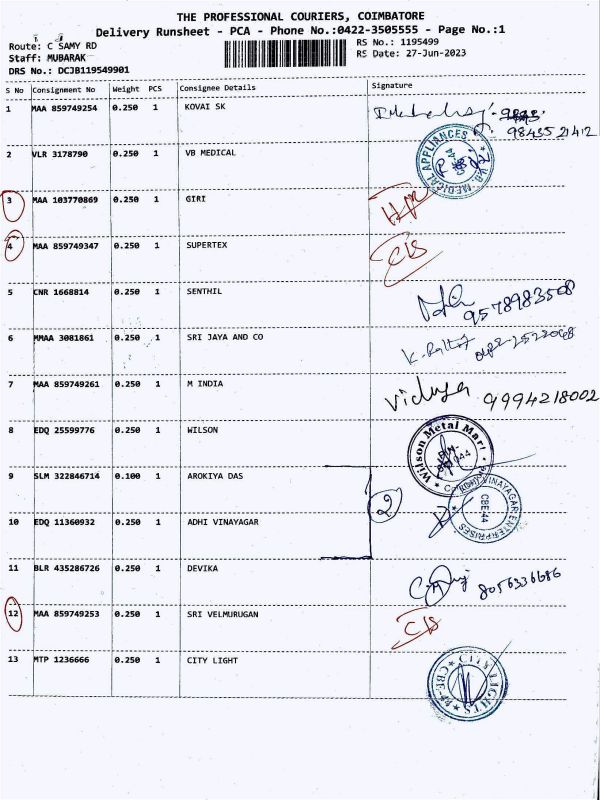 THE PROFESSIONAL COURIERS, COIMBATORE
Delivery Runsheet - PCA - Phone No.:0422-3505555 - Page No.:1
Route: C SAMY RD
RS No.: 1195499
Staff: MUBARAK
RS Date: 27-Jun-2023
DRS No.: DCJB119549901
S No Consignment No Weight PCS Consignee Details Signature
1 MAA 859749254 0.250 1 KOVAI SK
9843521412
2 VLR 3178790 0.250 1 VB MEDICAL
V.B. MEDICAL APPLIANCES
3 MAA 103770869 0.250 1 GIRI
4 MAA 859749347 0.250 1 SUPERTEX
C/S
5 CNR 1668814 0.250 1 SENTHIL
9578983508
6 MMAA 3081861 0.250 1 SRI JAYA AND CO
7 MAA 859749261 0.250 1 M INDIA
Vidhya 9994218002
8 EDQ 25599776 0.250 1 WILSON
Wilson Metal Mart
9 SLM 322846714 0.100 1 AROKIYA DAS
2
10 EDQ 11360932 0.250 1 ADHI VINAYAGAR
VINAYAGAR ENTERPRISES
CBE-44
11 BLR 435286726 0.250 1 DEVIKA
8056336686
12 MAA 859749253 0.250 1 SRI VELMURUGAN
C/S
13 MTP 1236666 0.250 1 CITY LIGHT
CITY LIGHTS
CBE-44